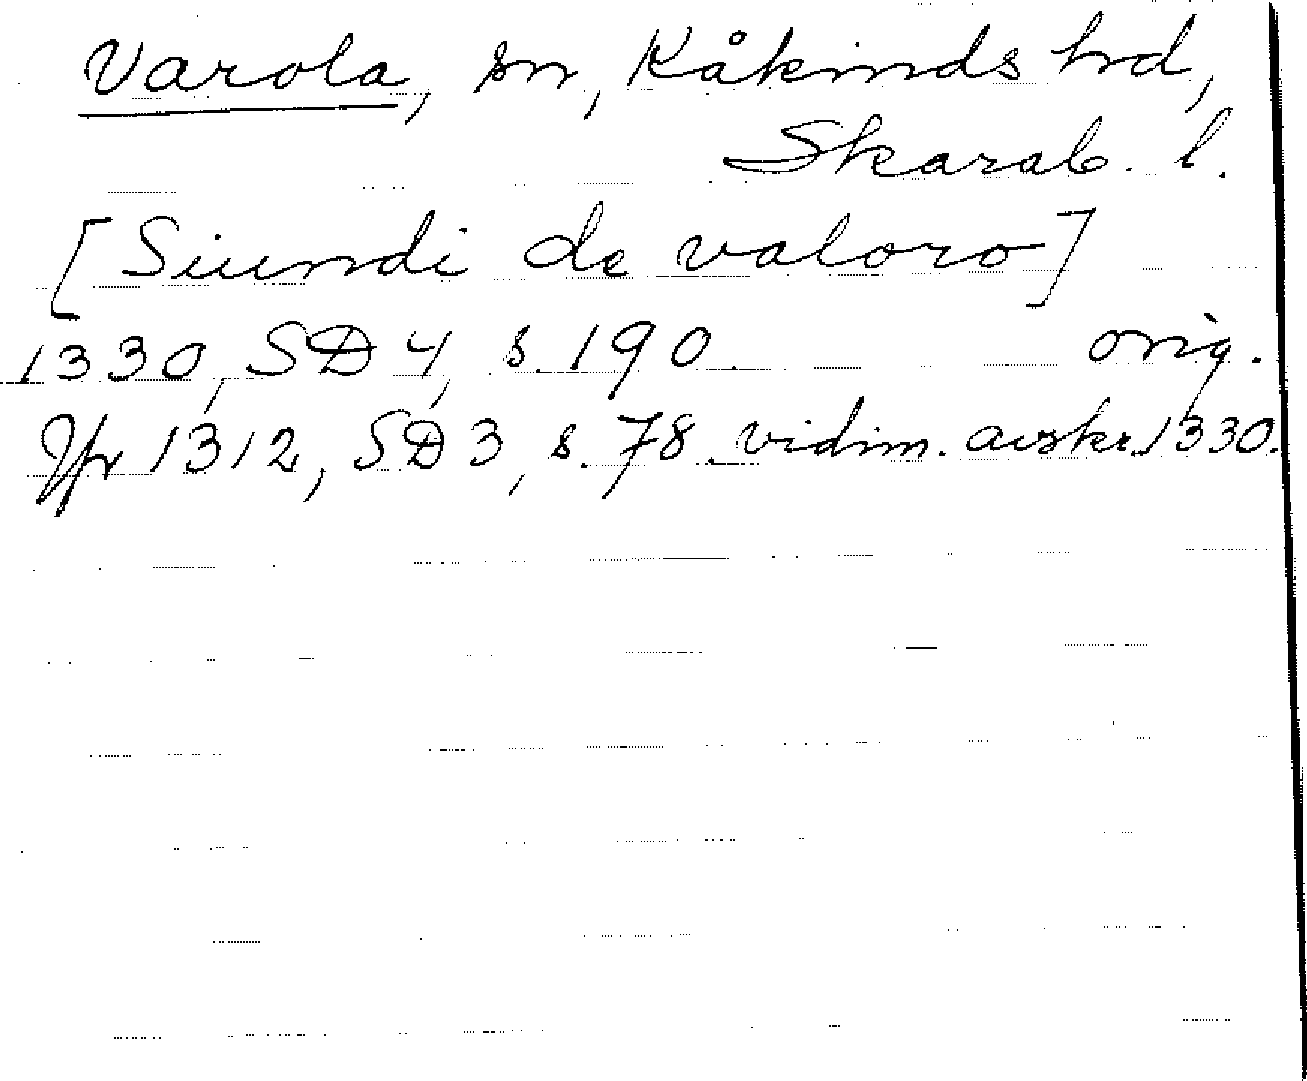 Varola, sn, Kåkinds hd,
Skarab. l.
[Siundi de valoro]
1330, SD 4, s. 190. orig.
Jfr 1312, SD 3, s. 78. vidim. avskr. 1330.